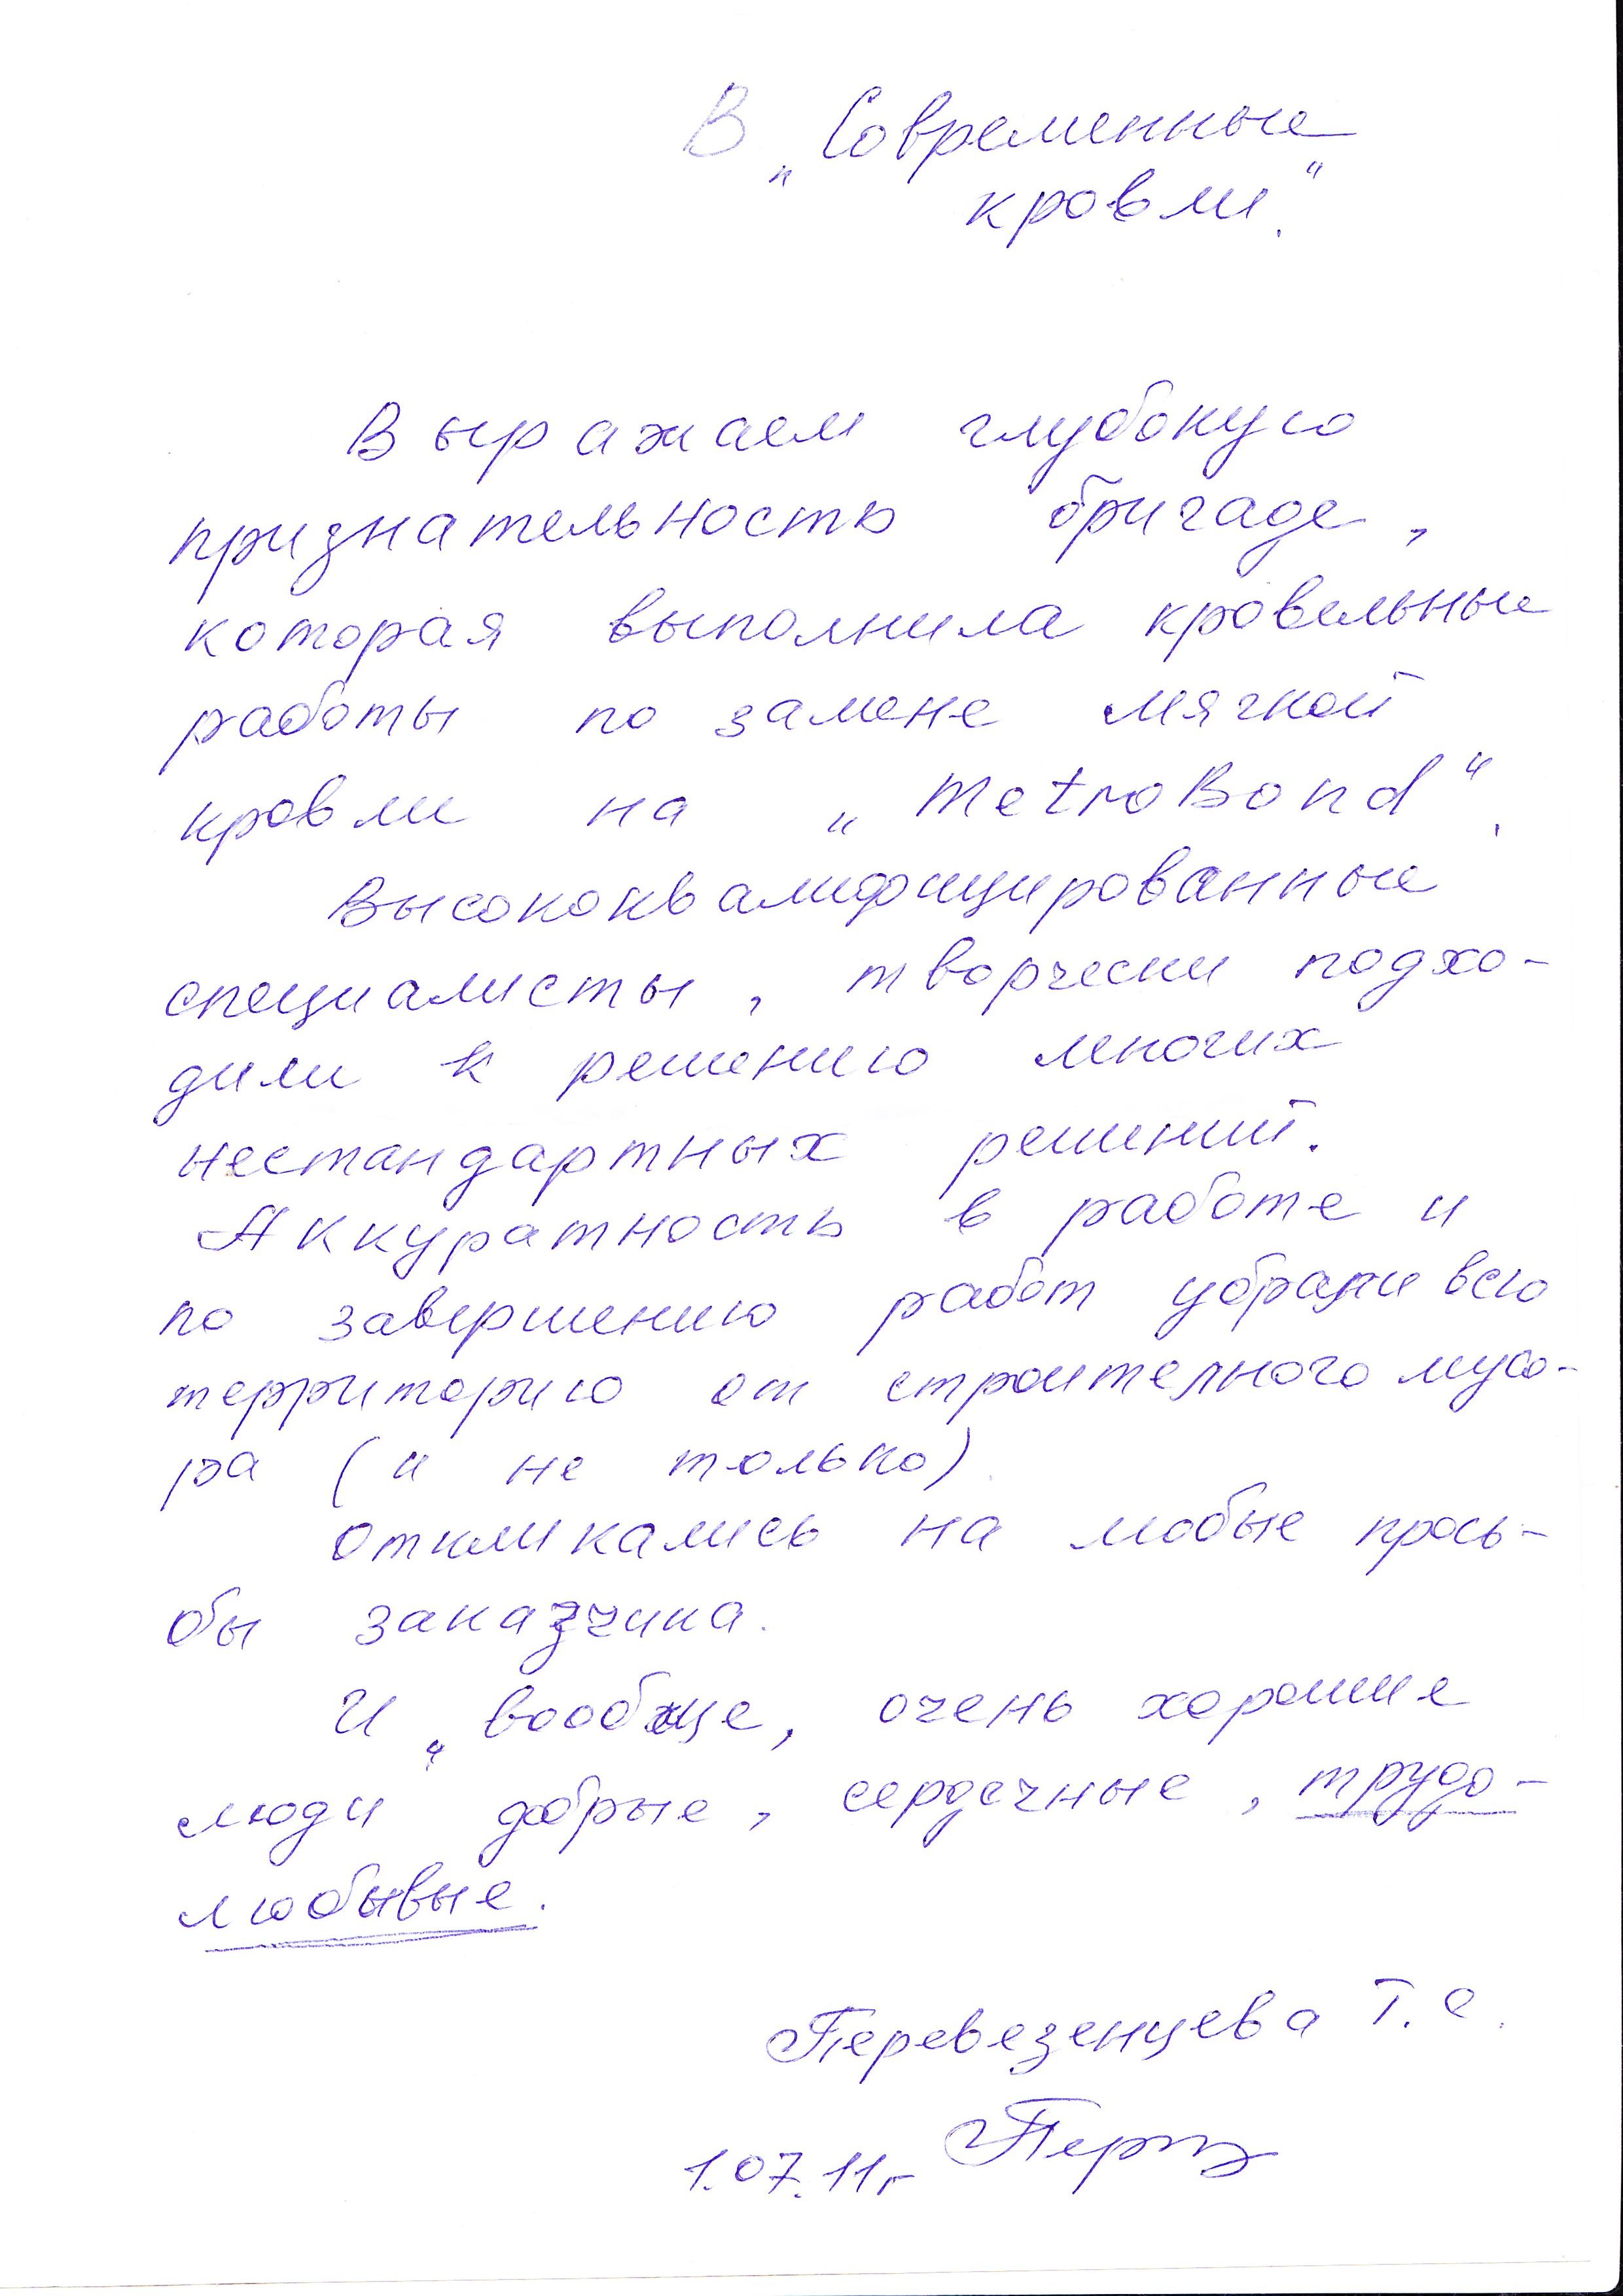 В „Современные
кровли".
Выражаем глубокую
признательность бригаде,
которая выполнила кровельные
работы по замене мягкой
кровли на „MetroBond".
Высококвалифицированные
специалисты, творчески подхо-
дили к решению многих
нестандартных решений.
Аккуратность в работе и
по завершению работ убрали всю
территорию от строителного мусо-
ра (и не только)
Откликались на любые прось-
бы заказчика.
И вообще, очень хорошие
люди добрые, сердечные, трудо-
любывые.
Перевезенцева Т. С.
1.07.11г